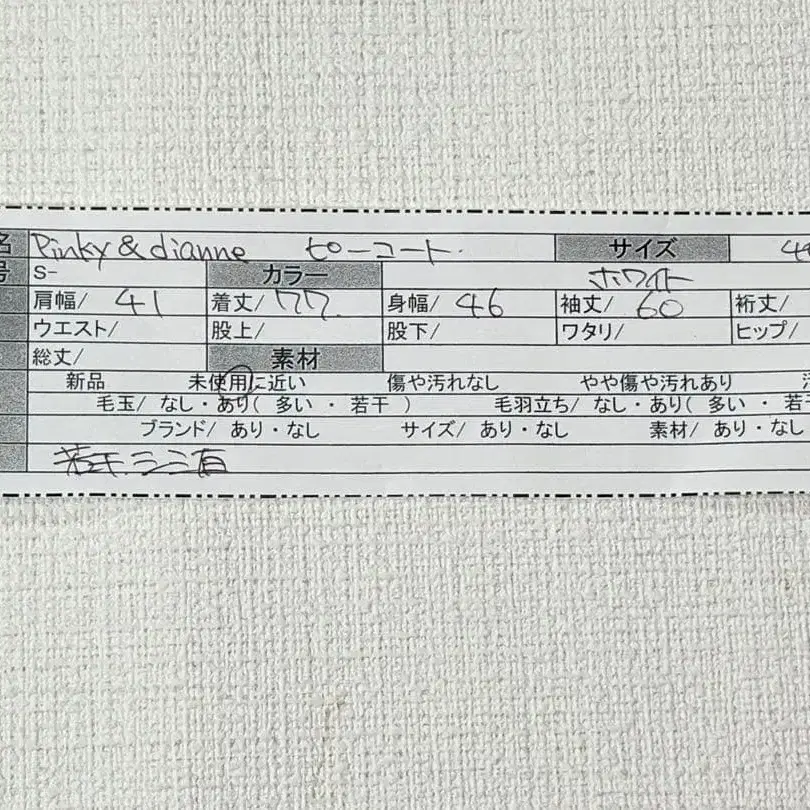 名 Pinky & dianne ピーコート. サイズ
号 S- カラー ホワイト
肩幅/ 41 着丈/ 77. 身幅/ 46 袖丈/ 60 裄丈/
ウエスト/ 股上/ 股下/ ワタリ/ ヒップ/
総丈/ 素材
新品 未使用に近い 傷や汚れなし やや傷や汚れあり
毛玉/ なし・あり( 多い ・ 若干 ) 毛羽立ち/ なし・あり( 多い ・ 若
ブランド/ あり・なし サイズ/ あり・なし 素材/ あり・なし
若干シミ有